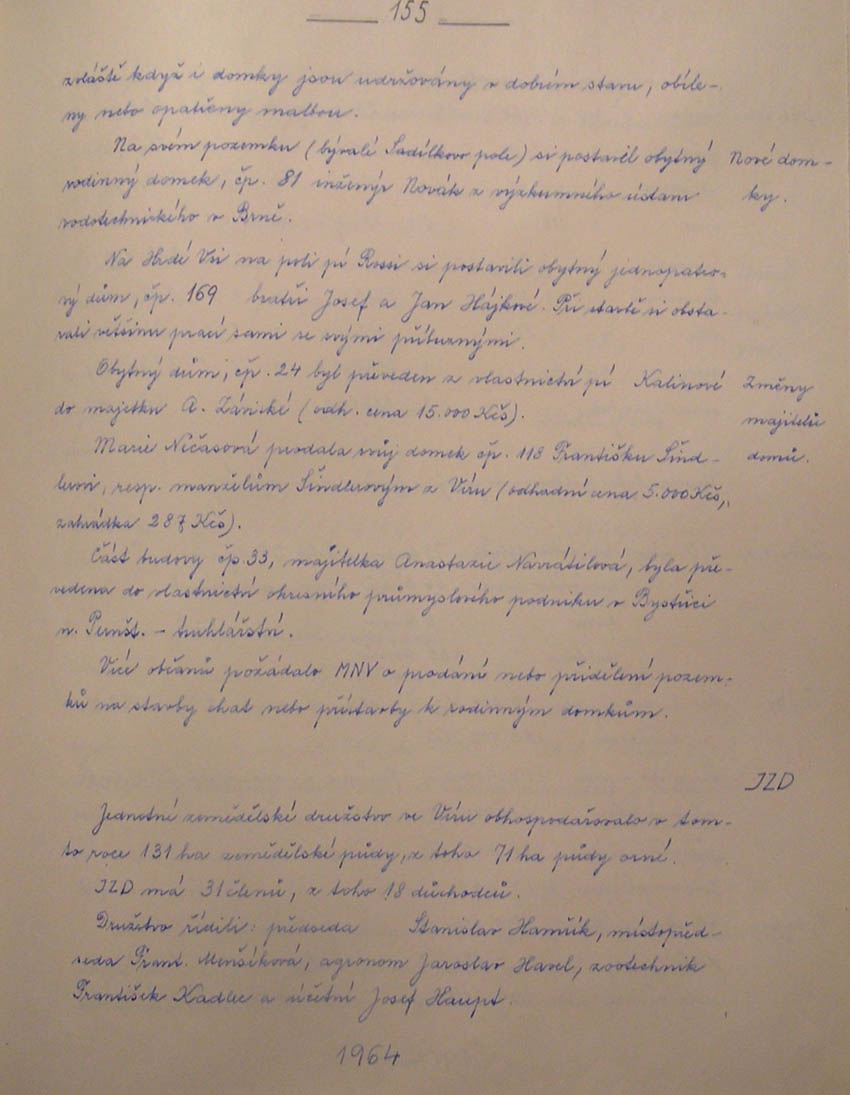 155
zvláště když i domky jsou udržovány v dobrém stavu, obíle-
ny nebo opatřeny malbou.
Na svém pozemku (bývalé Sadílkovo pole) si postavil obytný
Nové dom-
rodinný domek, čp. 81 inženýr Novák z výzkumného ústavu
ky.
vodotechnického v Brně.
Na Hrdé Vsi na poli pí Rossi si postavili obytný jednopatro-
vý dům, čp. 169 bratři Josef a Jan Hájkové. Při stavbě si obsta-
rali většinu prací sami se svými příbuznými.
Obytný dům, čp. 24 byl převeden z vlastnictví pí Kalinové
Změny
do majetku A. Zárické (odh. cena 15.000 Kčs).
majitelů
Marie Nečasová prodala svůj domek čp. 118 Františku Šind-
domů.
lerovi, resp. manželům Šindlerovým z Víru (odhadní cena 5.000 Kčs,
zahrádka 287 Kčs).
Část budovy čp. 33, majitelka Anastazie Navrátilová, byla pře-
vedena do vlastnictví okresního průmyslového podniku v Bystřici
n. Pernšt. – truhlářství.
Více občanů požádalo MNV o prodání nebo přidělení pozem-
ků na stavby chat nebo přístavby k rodinným domkům.
JZD
Jednotné zemědělské družstvo ve Víru obhospodařovalo v tom-
to roce 131 ha zemědělské půdy, z toho 71 ha půdy orné.
JZD má 31 členů, z toho 18 důchodců.
Družstvo řídili: předseda Stanislav Hamřík, místopřed-
seda Frant. Menšíková, agronom Jaroslav Havel, zootechnik
František Kadlec a účetní Josef Haupt.
1964